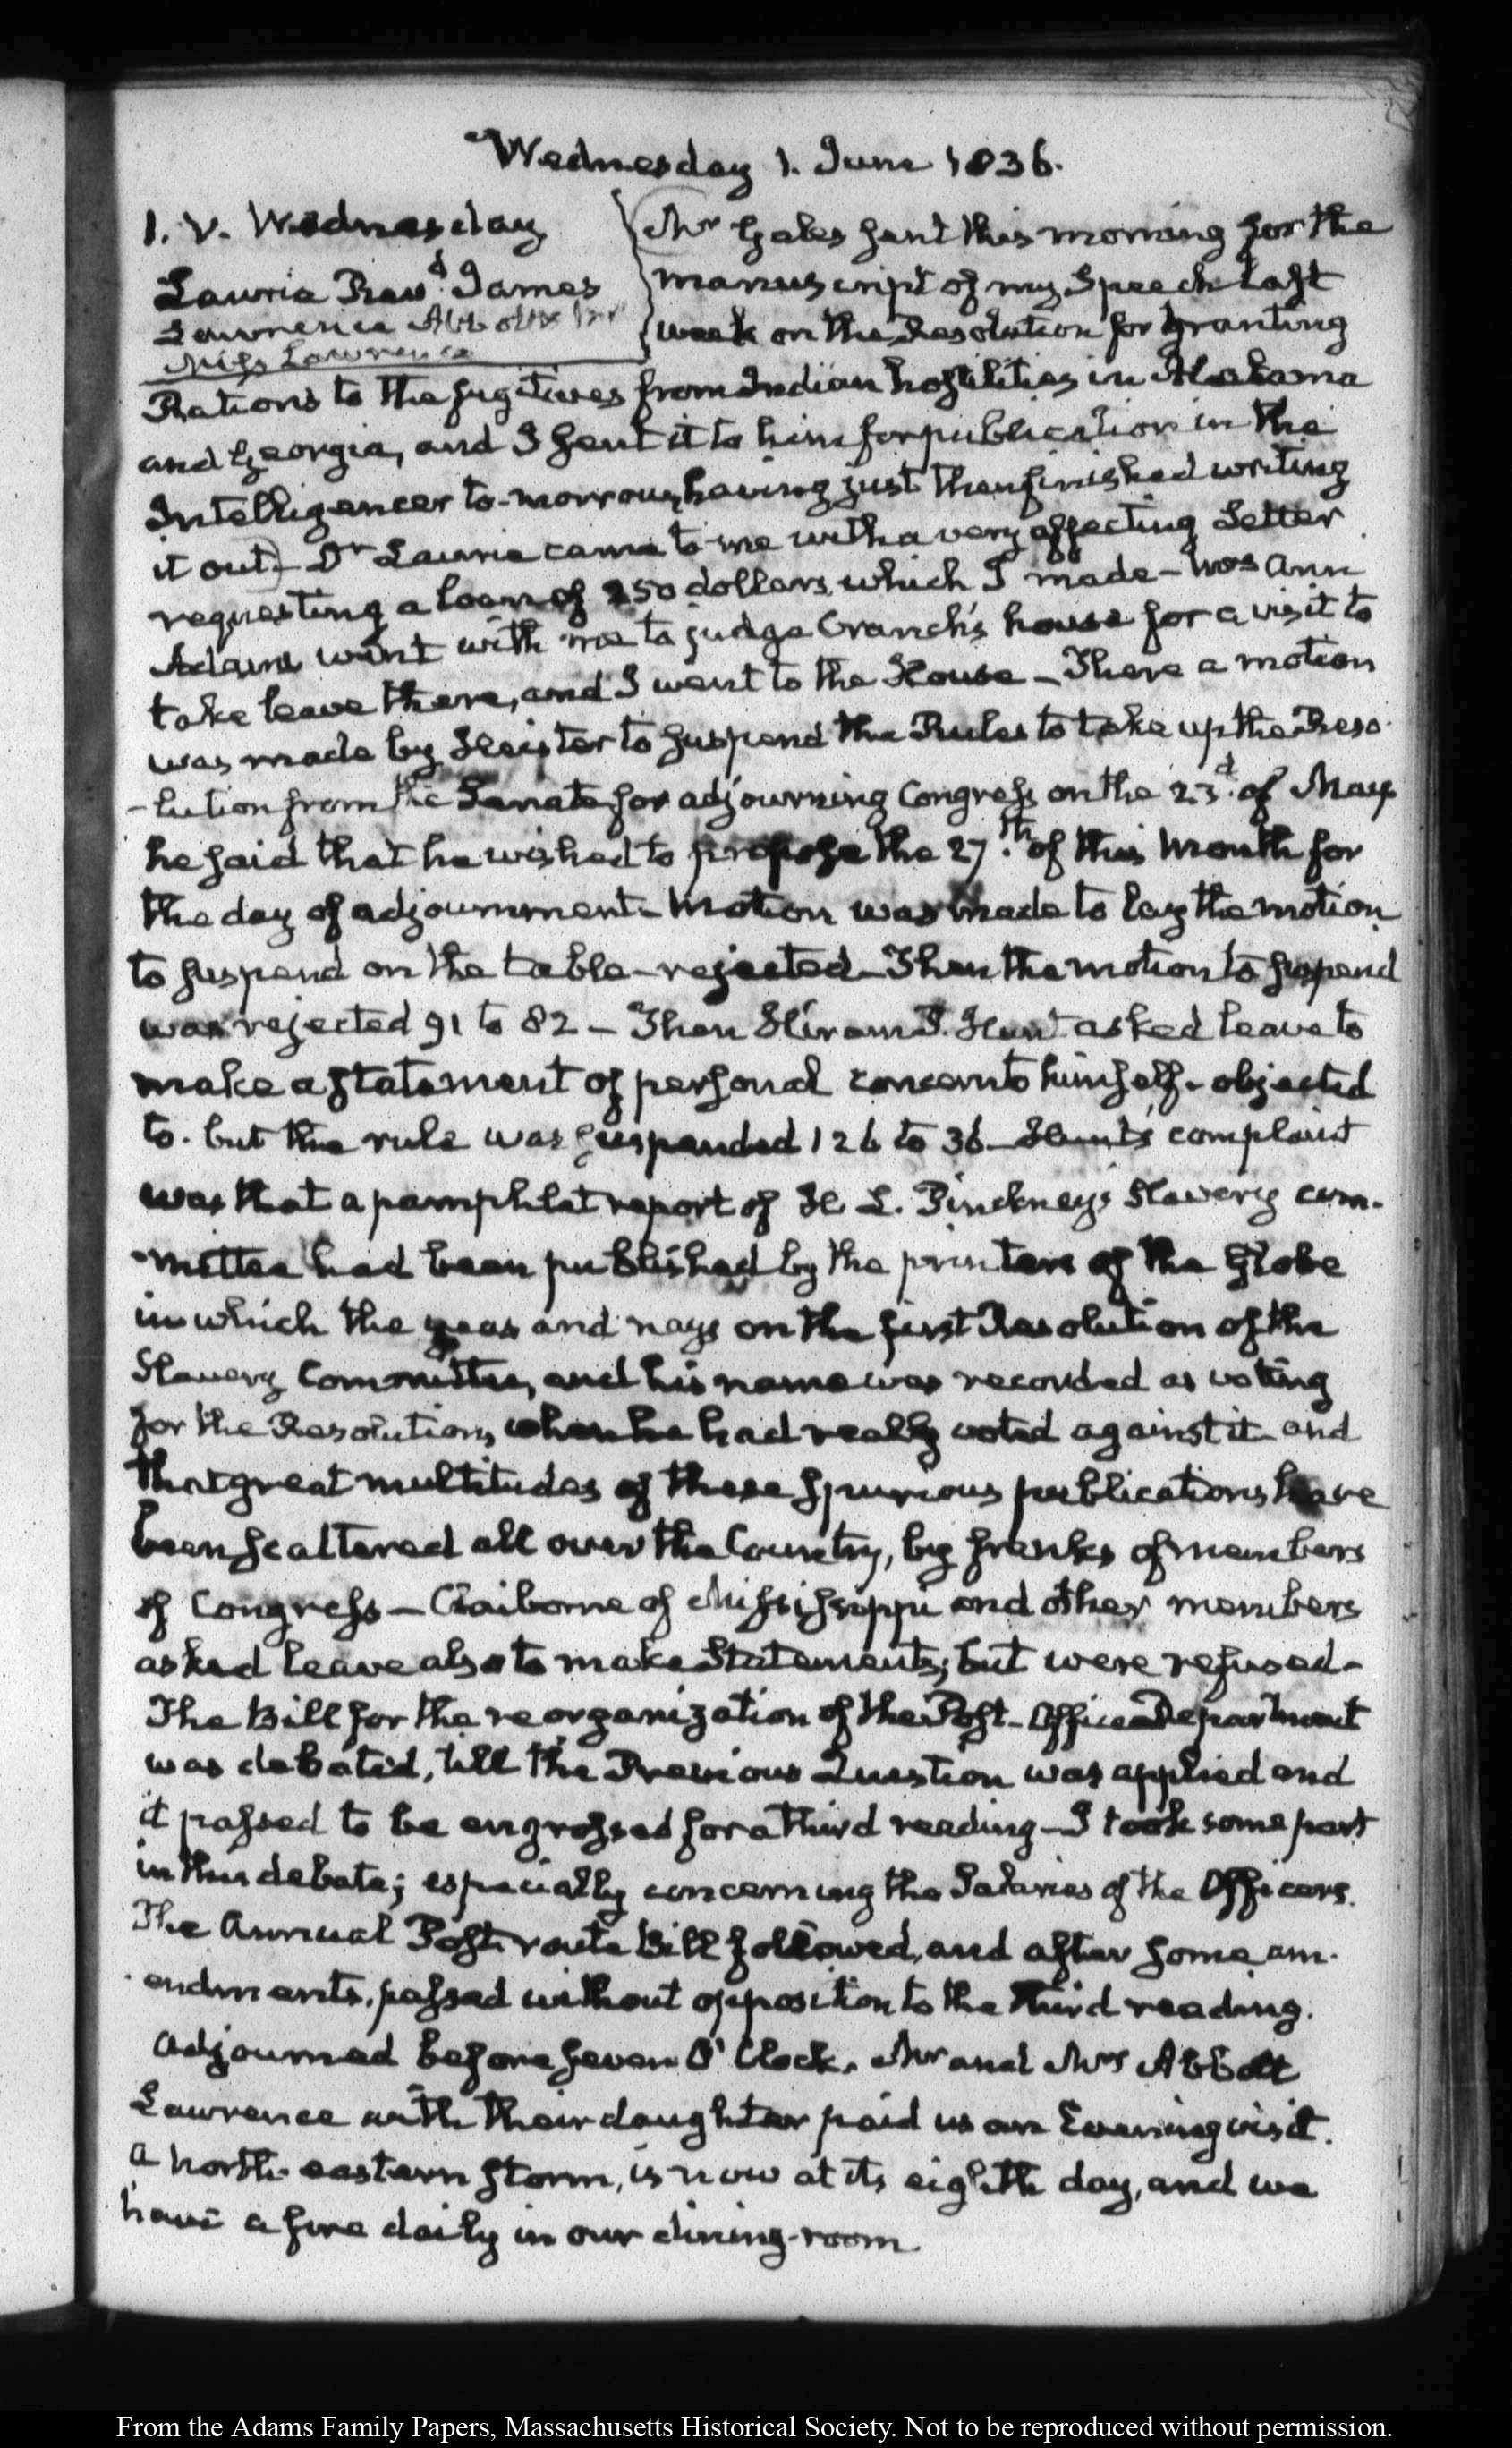 Wednesday 1. June 1836.
1. V. Wednesday
Laurie Revd. James
Lawrence Abbott Mr
Miss Lawrence
Mr Gales sent this morning for the
manuscript of my Speech last
week on the Resolution for granting
Rations to the fugitives from Indian hostilities in Alabama
and Georgia, and I sent it to him for publication in the
Intelligencer to-morrow, having just then finished writing
it out) - Dr Laurie came to me with a very affecting Letter
requesting a loan of 250 dollars, which I made - Mrs Ann
Adams went with me to judge Cranch's house for a visit to
take leave there, and I went to the House - There a motion
was made by Heister to suspend the Rules to take up the Reso-
-lution from the Senate for adjourning Congress on the 23d. of May
he said that he wished to propose the 27.th of this Month for
the day of adjournment - Motion was made to lay the motion
to suspend on the table - rejected - Then the motion to suspend
was rejected 91 to 82 - Then Hiram P. Hunt asked leave to
make a statement of personal concern to himself - objected
to. but the rule was suspended 126 to 36 - Hunt's complaint
was that a pamphlet report of H. L. Pinckney's Slavery com-
-mittee had been published by the printers of the Globe
in which the yeas and nays on the first Resolution of the
Slavery Committee, and his name was recorded as voting
for the Resolution, when he had really voted against it - and
that great multitudes of these spurious publications have
been scattered all over the Country, by franks of members
of Congress - Claiborne of Mississippi and other members
asked leave also to make Statements; but were refused -
The Bill for the reorganization of the Post-Office Department
was debated, till the Previous Question was applied and
it passed to be engrossed for a third reading - I took some part
in this debate; especially concerning the Salaries of the Officers.
The Annual Post-route Bill followed, and after some am-
-endments, passed without opposition to the third reading.
Adjourned before seven O'Clock. Mr and Mrs Abbott
Lawrence with their daughter paid us an Evening visit.
A north-eastern storm, is now at its eighth day, and we
have a fire daily in our dining-room
From the Adams Family Papers, Massachusetts Historical Society. Not to be reproduced without permission.